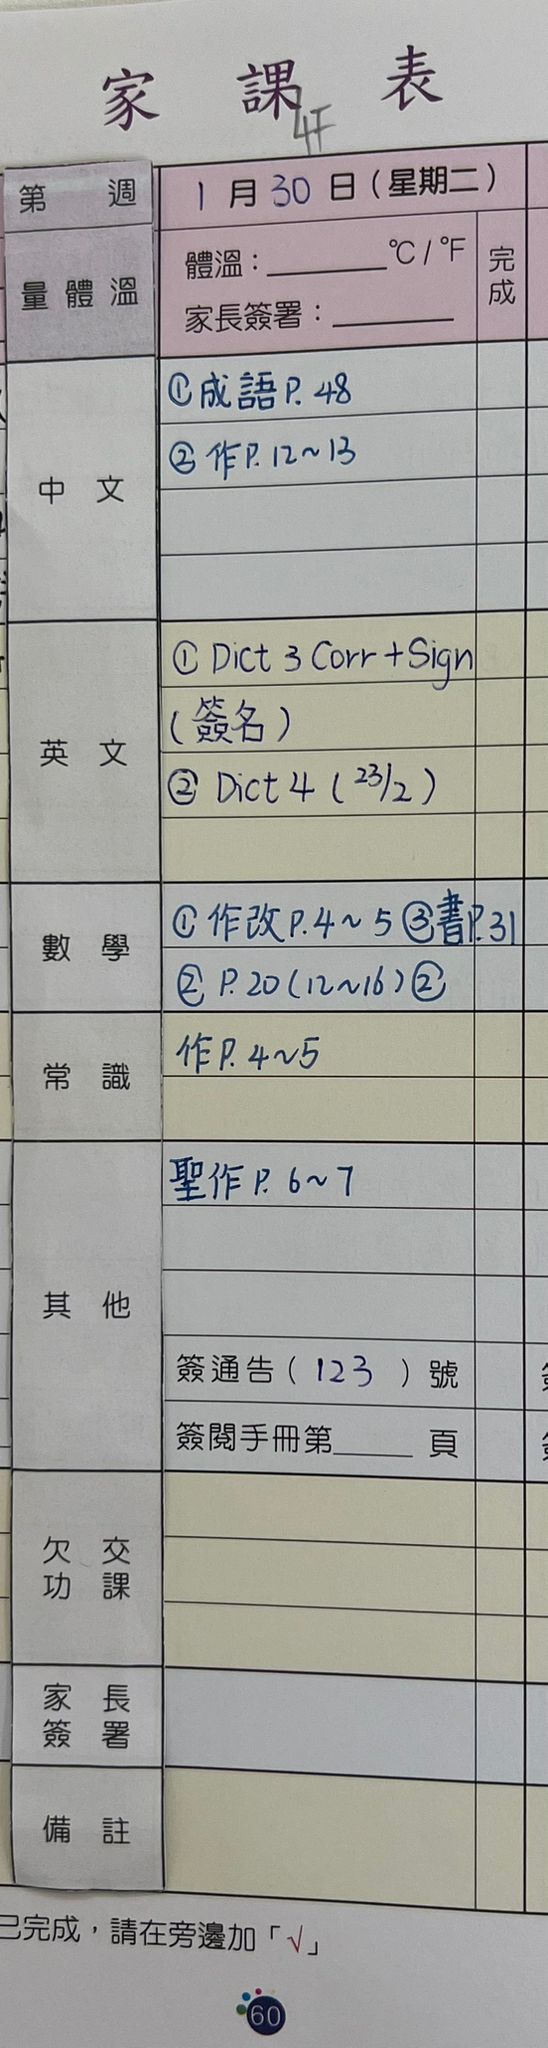 家課表
4F
第 週
1月30日(星期二)
量體溫
體溫：______℃/℉
家長簽署：______
完成
中文
①成語P.48
②作P.12~13
英文
①Dict 3 Corr+Sign
(簽名)
②Dict 4 (23/2)
數學
①作改P.4~5 ③書P.31
②P.20(12~16)②
常識
作P.4~5
其他
聖作P.6~7
簽通告(123)號
簽閱手冊第____頁
欠交
功課
家長
簽署
備註
已完成，請在旁邊加「√」
60